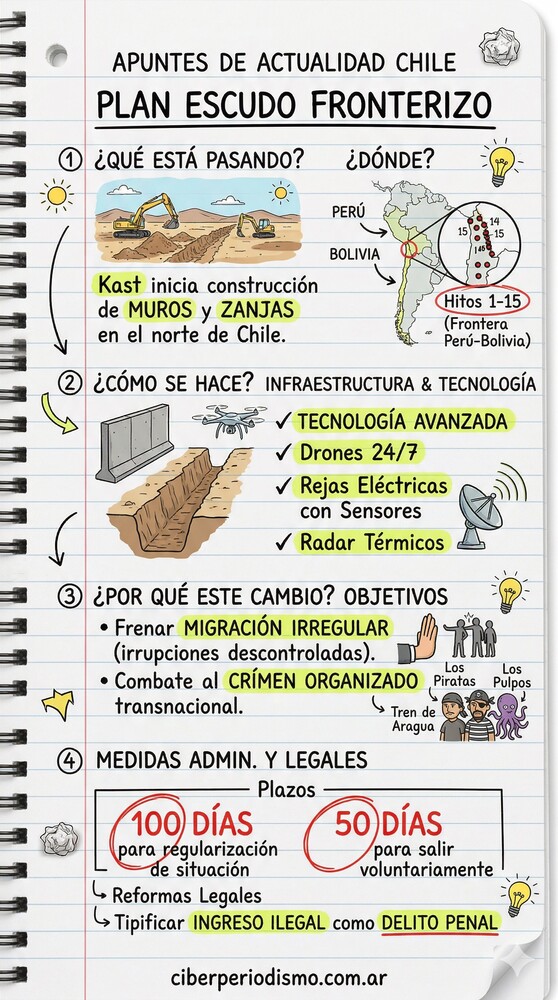 APUNTES DE ACTUALIDAD CHILE
PLAN ESCUDO FRONTERIZO
1 ¿QUÉ ESTÁ PASANDO?
Kast inicia construcción
de MUROS y ZANJAS
en el norte de Chile.
¿DÓNDE?
PERÚ
BOLIVIA
15
14
15
Hitos 1-15
(Frontera
Perú-Bolivia)
2 ¿CÓMO SE HACE? INFRAESTRUCTURA & TECNOLOGÍA
✓ TECNOLOGÍA AVANZADA
✓ Drones 24/7
✓ Rejas Eléctricas
con Sensores
✓ Radar Térmicos
3 ¿POR QUÉ ESTE CAMBIO? OBJETIVOS
• Frenar MIGRACIÓN IRREGULAR
(irrupciones descontroladas).
• Combate al CRÍMEN ORGANIZADO
transnacional.
Tren de
Aragua
Los
Piratas
Los
Pulpos
4 MEDIDAS ADMIN. Y LEGALES
Plazos
100 DÍAS
para regularización
de situación
50 DÍAS
para salir
voluntariamente
Reformas Legales
Tipificar INGRESO ILEGAL como DELITO PENAL
ciberperiodismo.com.ar